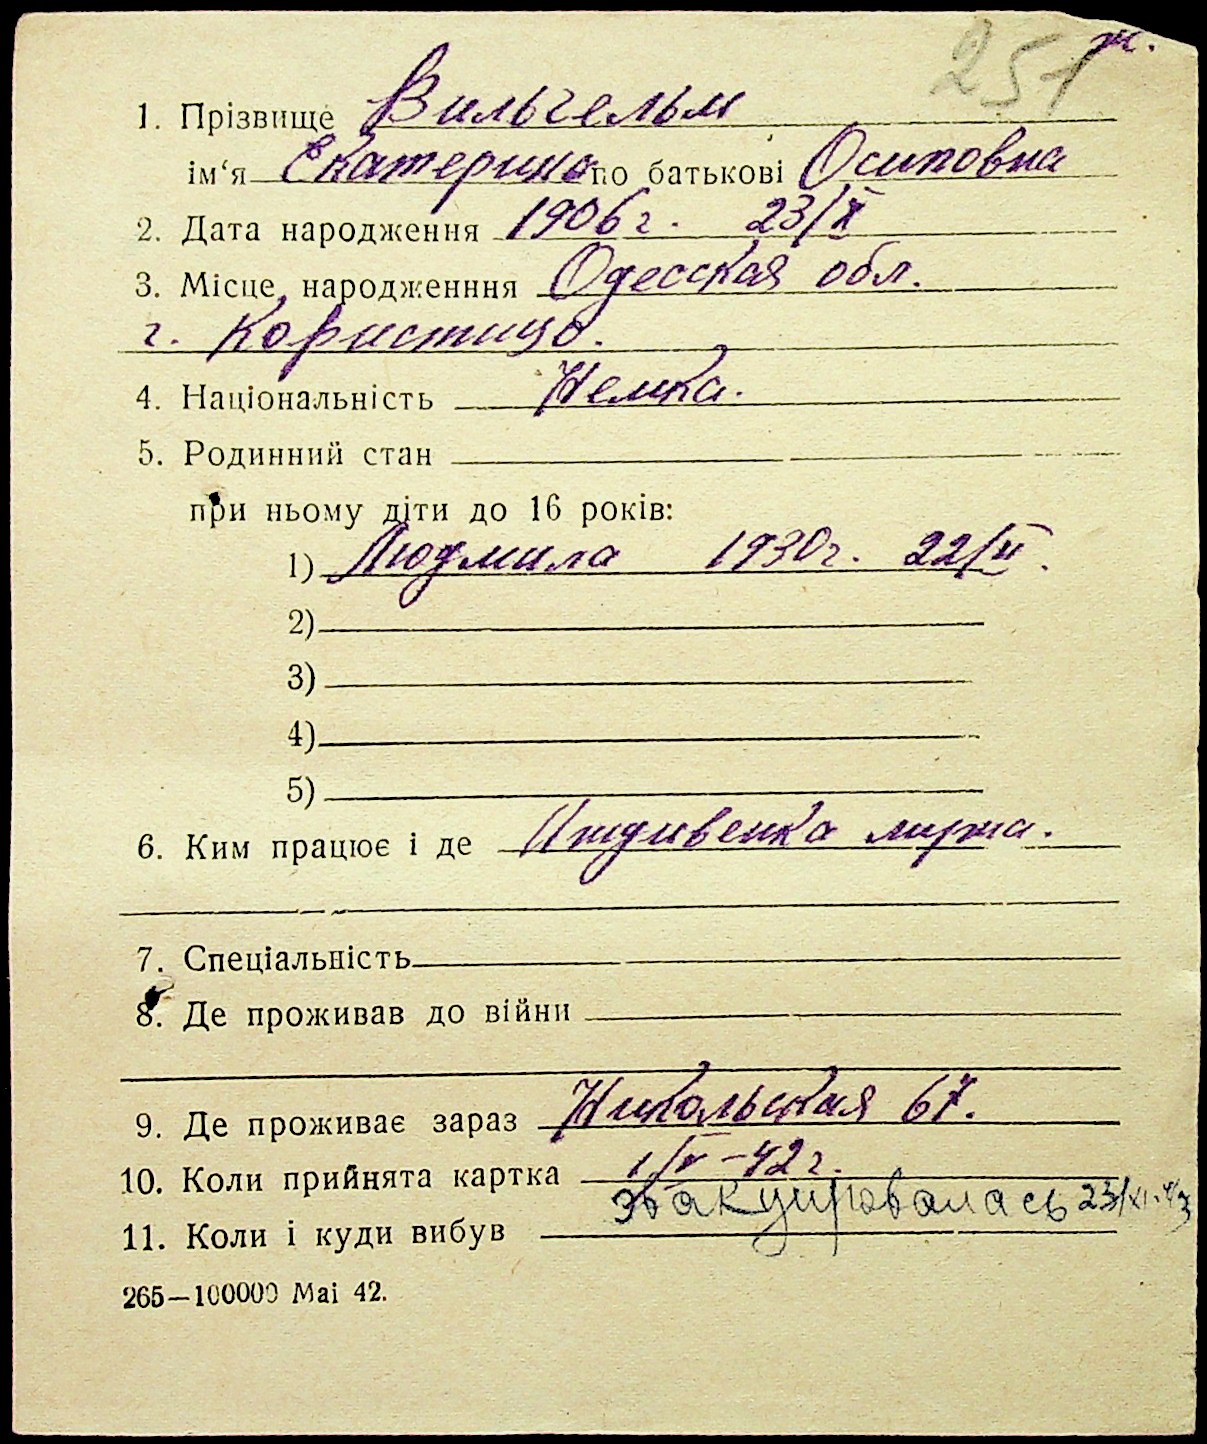 251 ж.
1. Прізвище Вильгельм
ім‘я Екатерина по батькові Осиповна
2. Дата народження 1906 г. 23/X
3. Місце народженння Одесская обл.
г. Користицо.
4. Національність Немка.
5. Родинний стан
при ньому діти до 16 років:
1) Людмила 1930 г. 22/II.
2)
3)
4)
5)
6. Ким працює і де Иждивенка мужа.
7. Спеціальність
8. Де проживав до війни
9. Де проживає зараз Никольская 67.
10. Коли прийнята картка 1/V - 42 г.
11. Коли і куди вибув Эвакуировалась 23/XI-43
265—100000 Маі 42.